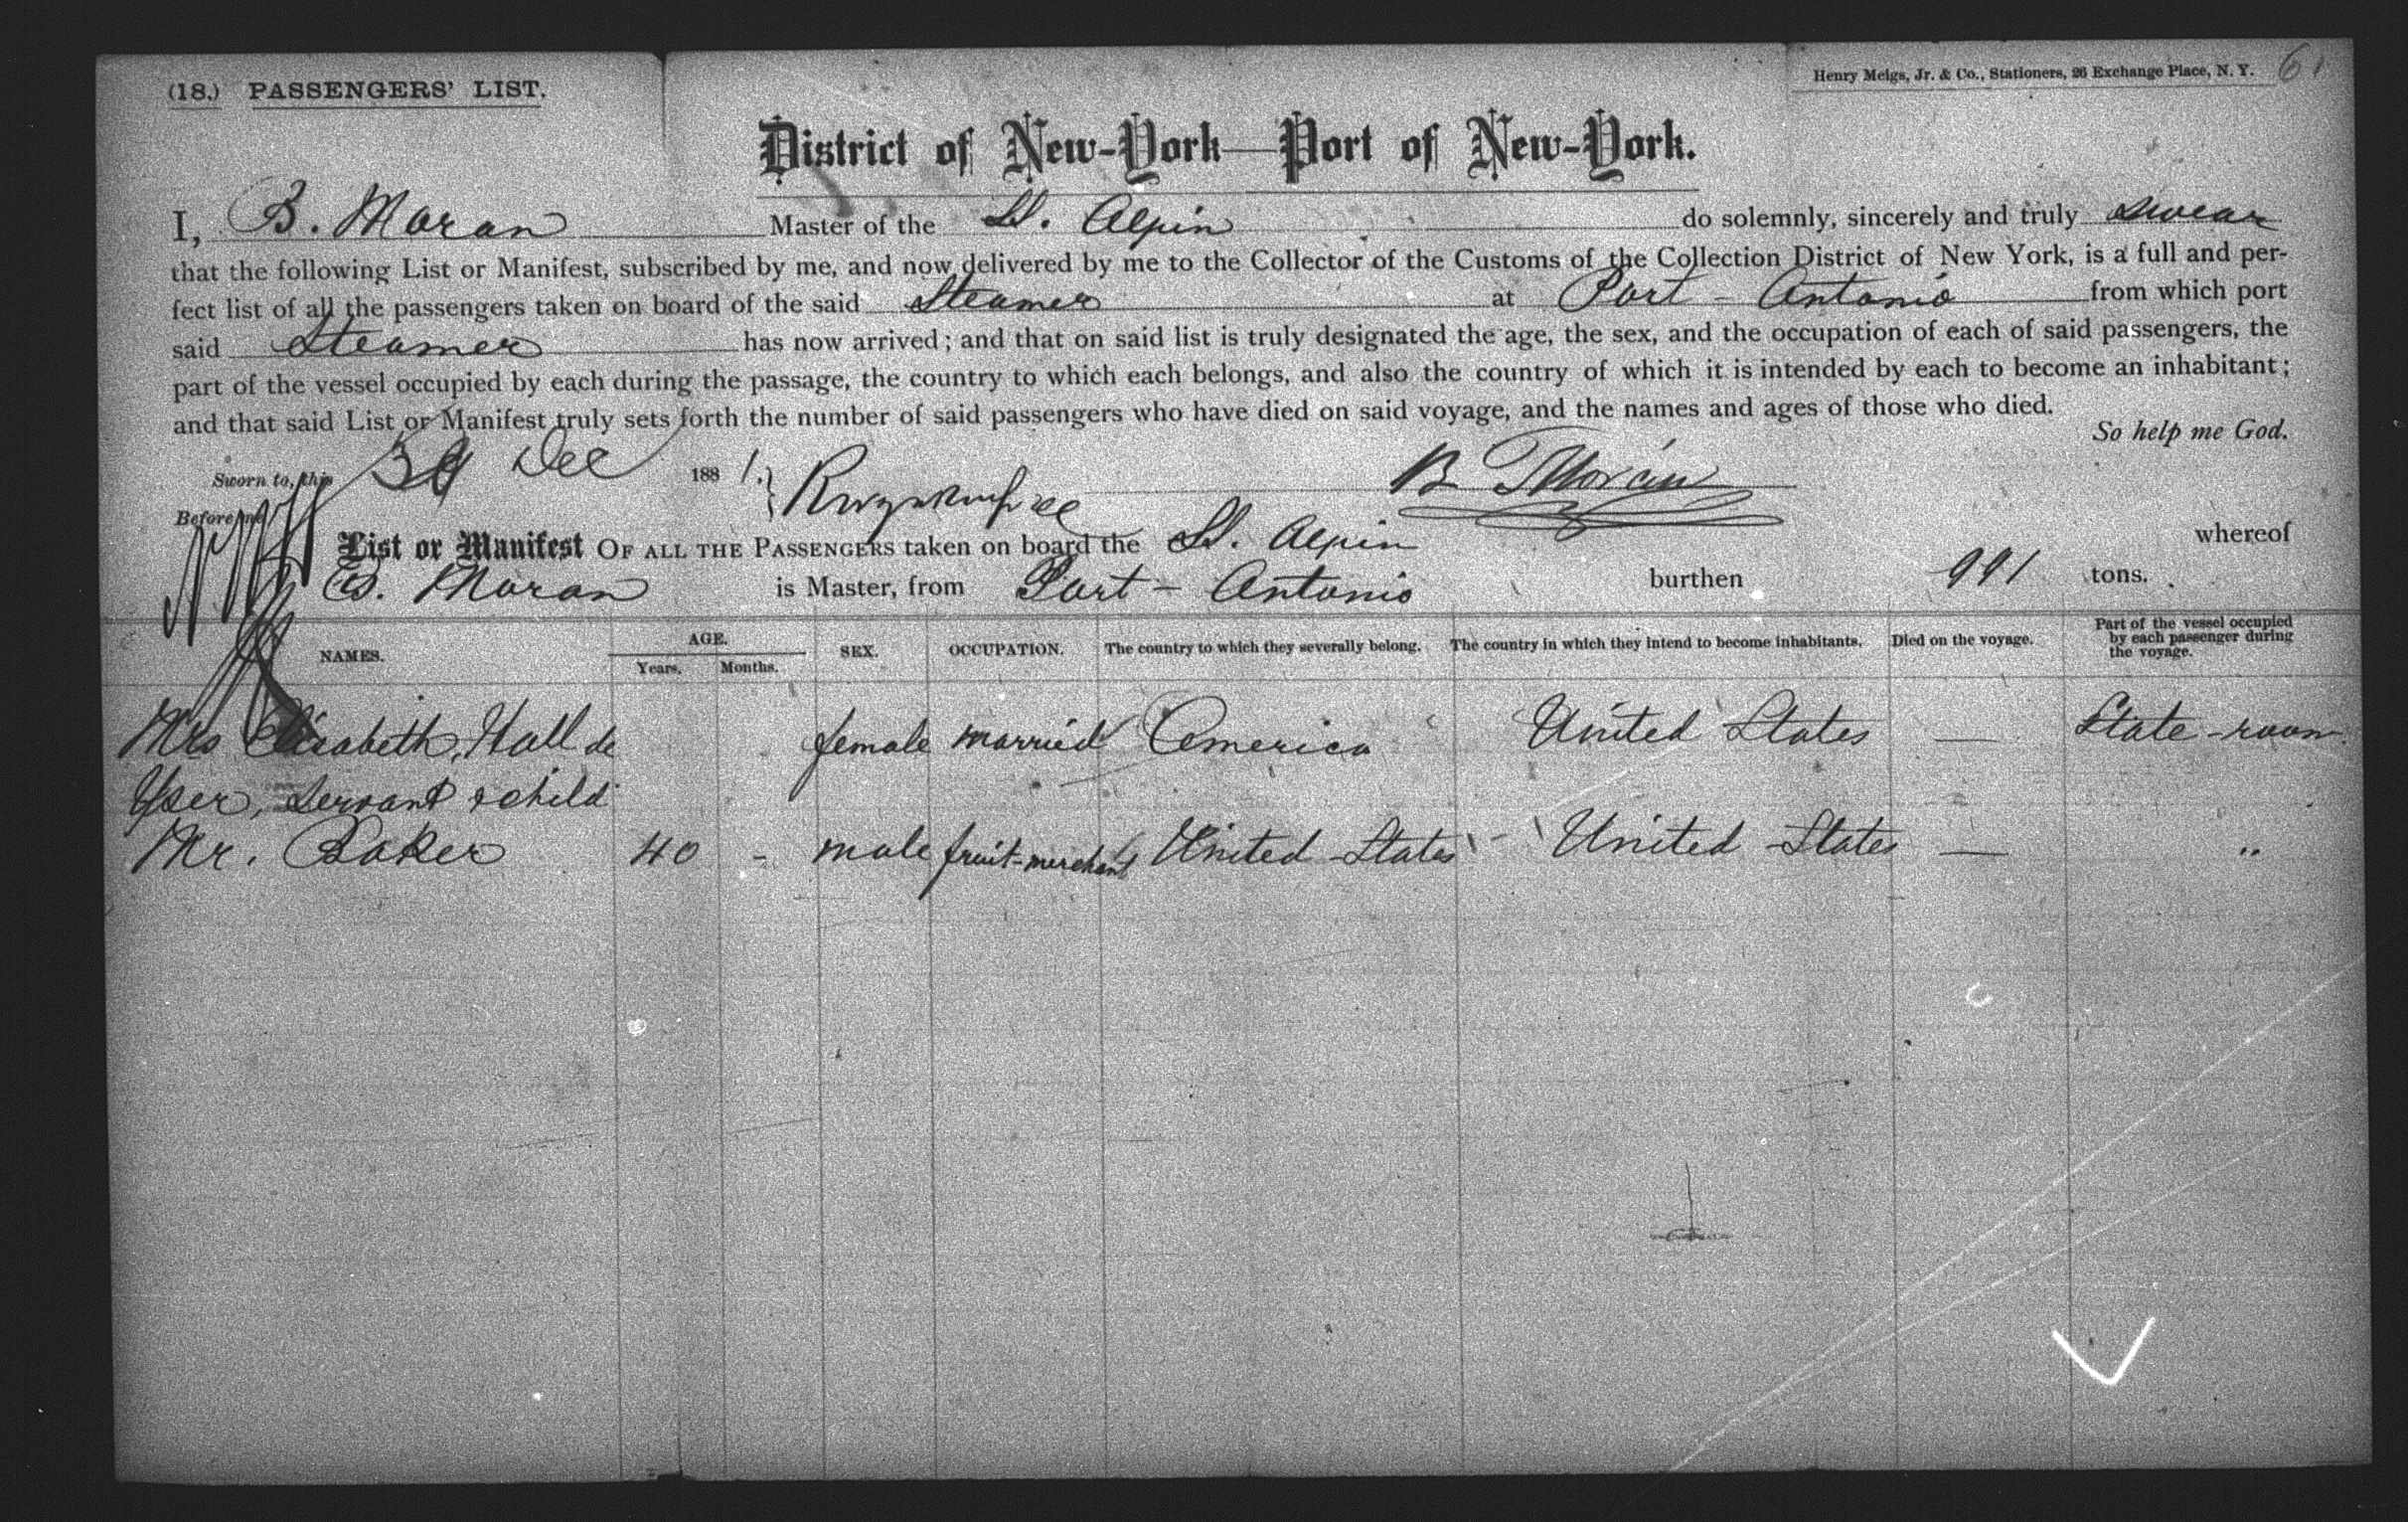 (18.) PASSENGERS' LIST.
Henry Meigs, Jr. & Co., Stationers, 26 Exchange Place, N. Y. 61
District of New-York—Port of New-York.
I, B. Moran Master of the St. Alpin do solemnly, sincerely and truly swear
that the following List or Manifest, subscribed by me, and now delivered by me to the Collector of the Customs of the Collection District of New York, is a full and per-
fect list of all the passengers taken on board of the said Steamer at Port - Antonio from which port
said Steamer has now arrived; and that on said list is truly designated the age, the sex, and the occupation of each of said passengers, the
part of the vessel occupied by each during the passage, the country to which each belongs, and also the country of which it is intended by each to become an inhabitant;
and that said List or Manifest truly sets forth the number of said passengers who have died on said voyage, and the names and ages of those who died.
So help me God.
Sworn to, this Dec 1881. B Moran
Before me
List or Manifest OF ALL THE PASSENGERS taken on board the St. Alpin whereof
B. Moran is Master, from Port - Antonio burthen 991 tons.
NAMES. AGE. Years. Months. SEX. OCCUPATION. The country to which they severally belong. The country in which they intend to become inhabitants. Died on the voyage. Part of the vessel occupied by each passenger during the voyage.
Mrs Elisabeth, Hall de female married America United States — State-room
Yser, Servant & child
Mr. Baker 40 - male fruit-merchant United States - United States — "